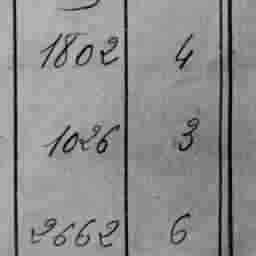 1802 4
1026 3
2662 6